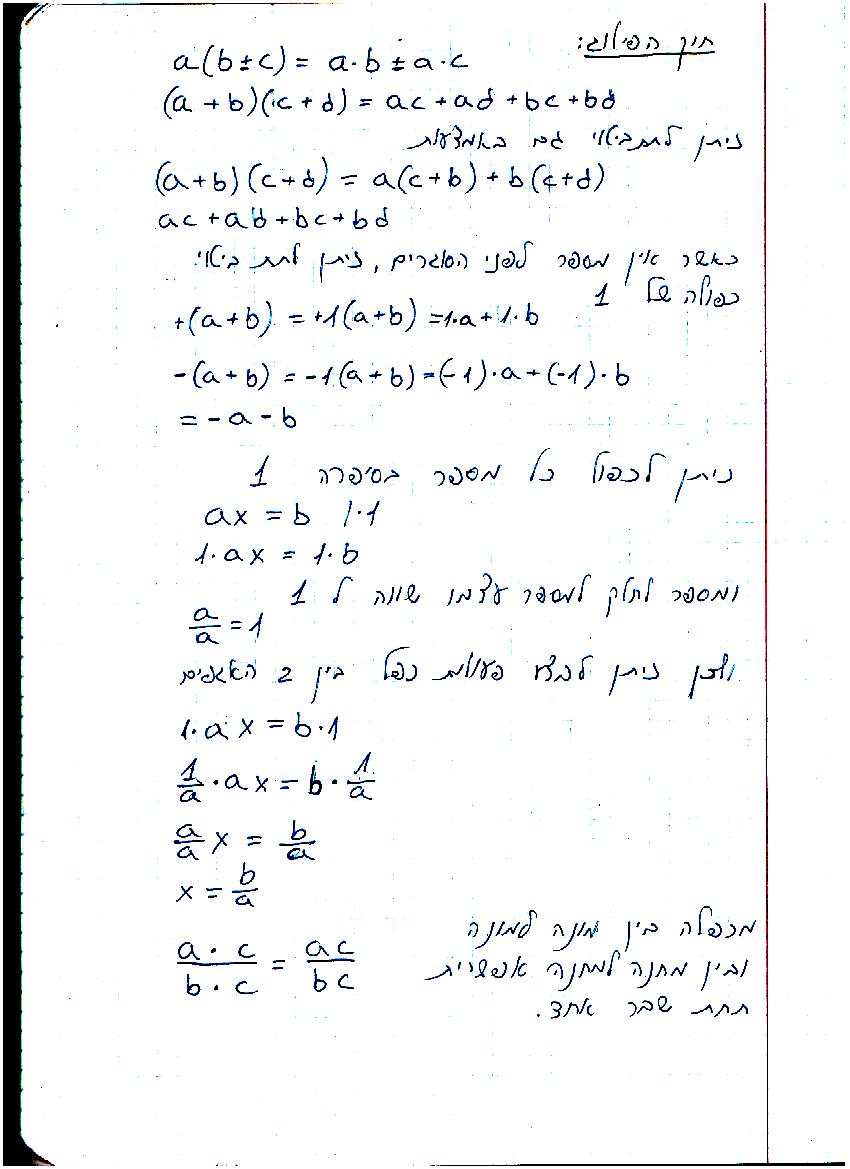 חוק הפילוג:
a(b±c) = a·b ± a·c
(a+b)(c+d) = ac+ad+bc+bd
ניתן לתת ביטוי גם באמצעות
(a+b)(c+d) = a(c+b) + b(c+d)
ac+ad+bc+bd
כאשר אין מספר לפני הסוגרים, ניתן לתת ביטוי
כפולה של 1
+(a+b) = +1(a+b) = 1·a + 1·b
-(a+b) = -1(a+b) = (-1)·a + (-1)·b
= -a - b
ניתן לכפול כל מספר בסיפרה 1
ax = b /·1
1·ax = 1·b
ומספר לחלק למספר עצמו שווה ל 1
a/a = 1
ולכן ניתן לבצע פעולות כפל בין 2 האגפים
1·ax = b·1
1/a · ax = b · 1/a
a/a x = b/a
x = b/a
מכפלה בין מונה למונה
ובין מחנה למחנה אפשרית
תחת שבר אחד.
a·c / b·c = ac / bc